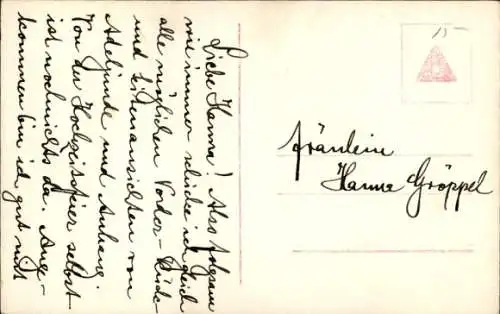 Liebe Hanna! Also folgsam
wie immer schicke ich gleich
alle möglichen Vorder- Rück-
und Seitenansichten von
Adelgunde und Anhang.
Von der Hochzeitsfeier selbst
ist noch nichts da. Ange-
kommen bin ich gut mit
15
Fräulein
Hanna Gröppel